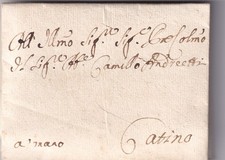 All Illmo Sig.r Sig.r Col.mo
il Sig.r Camillo Andreetti
a mano Catino